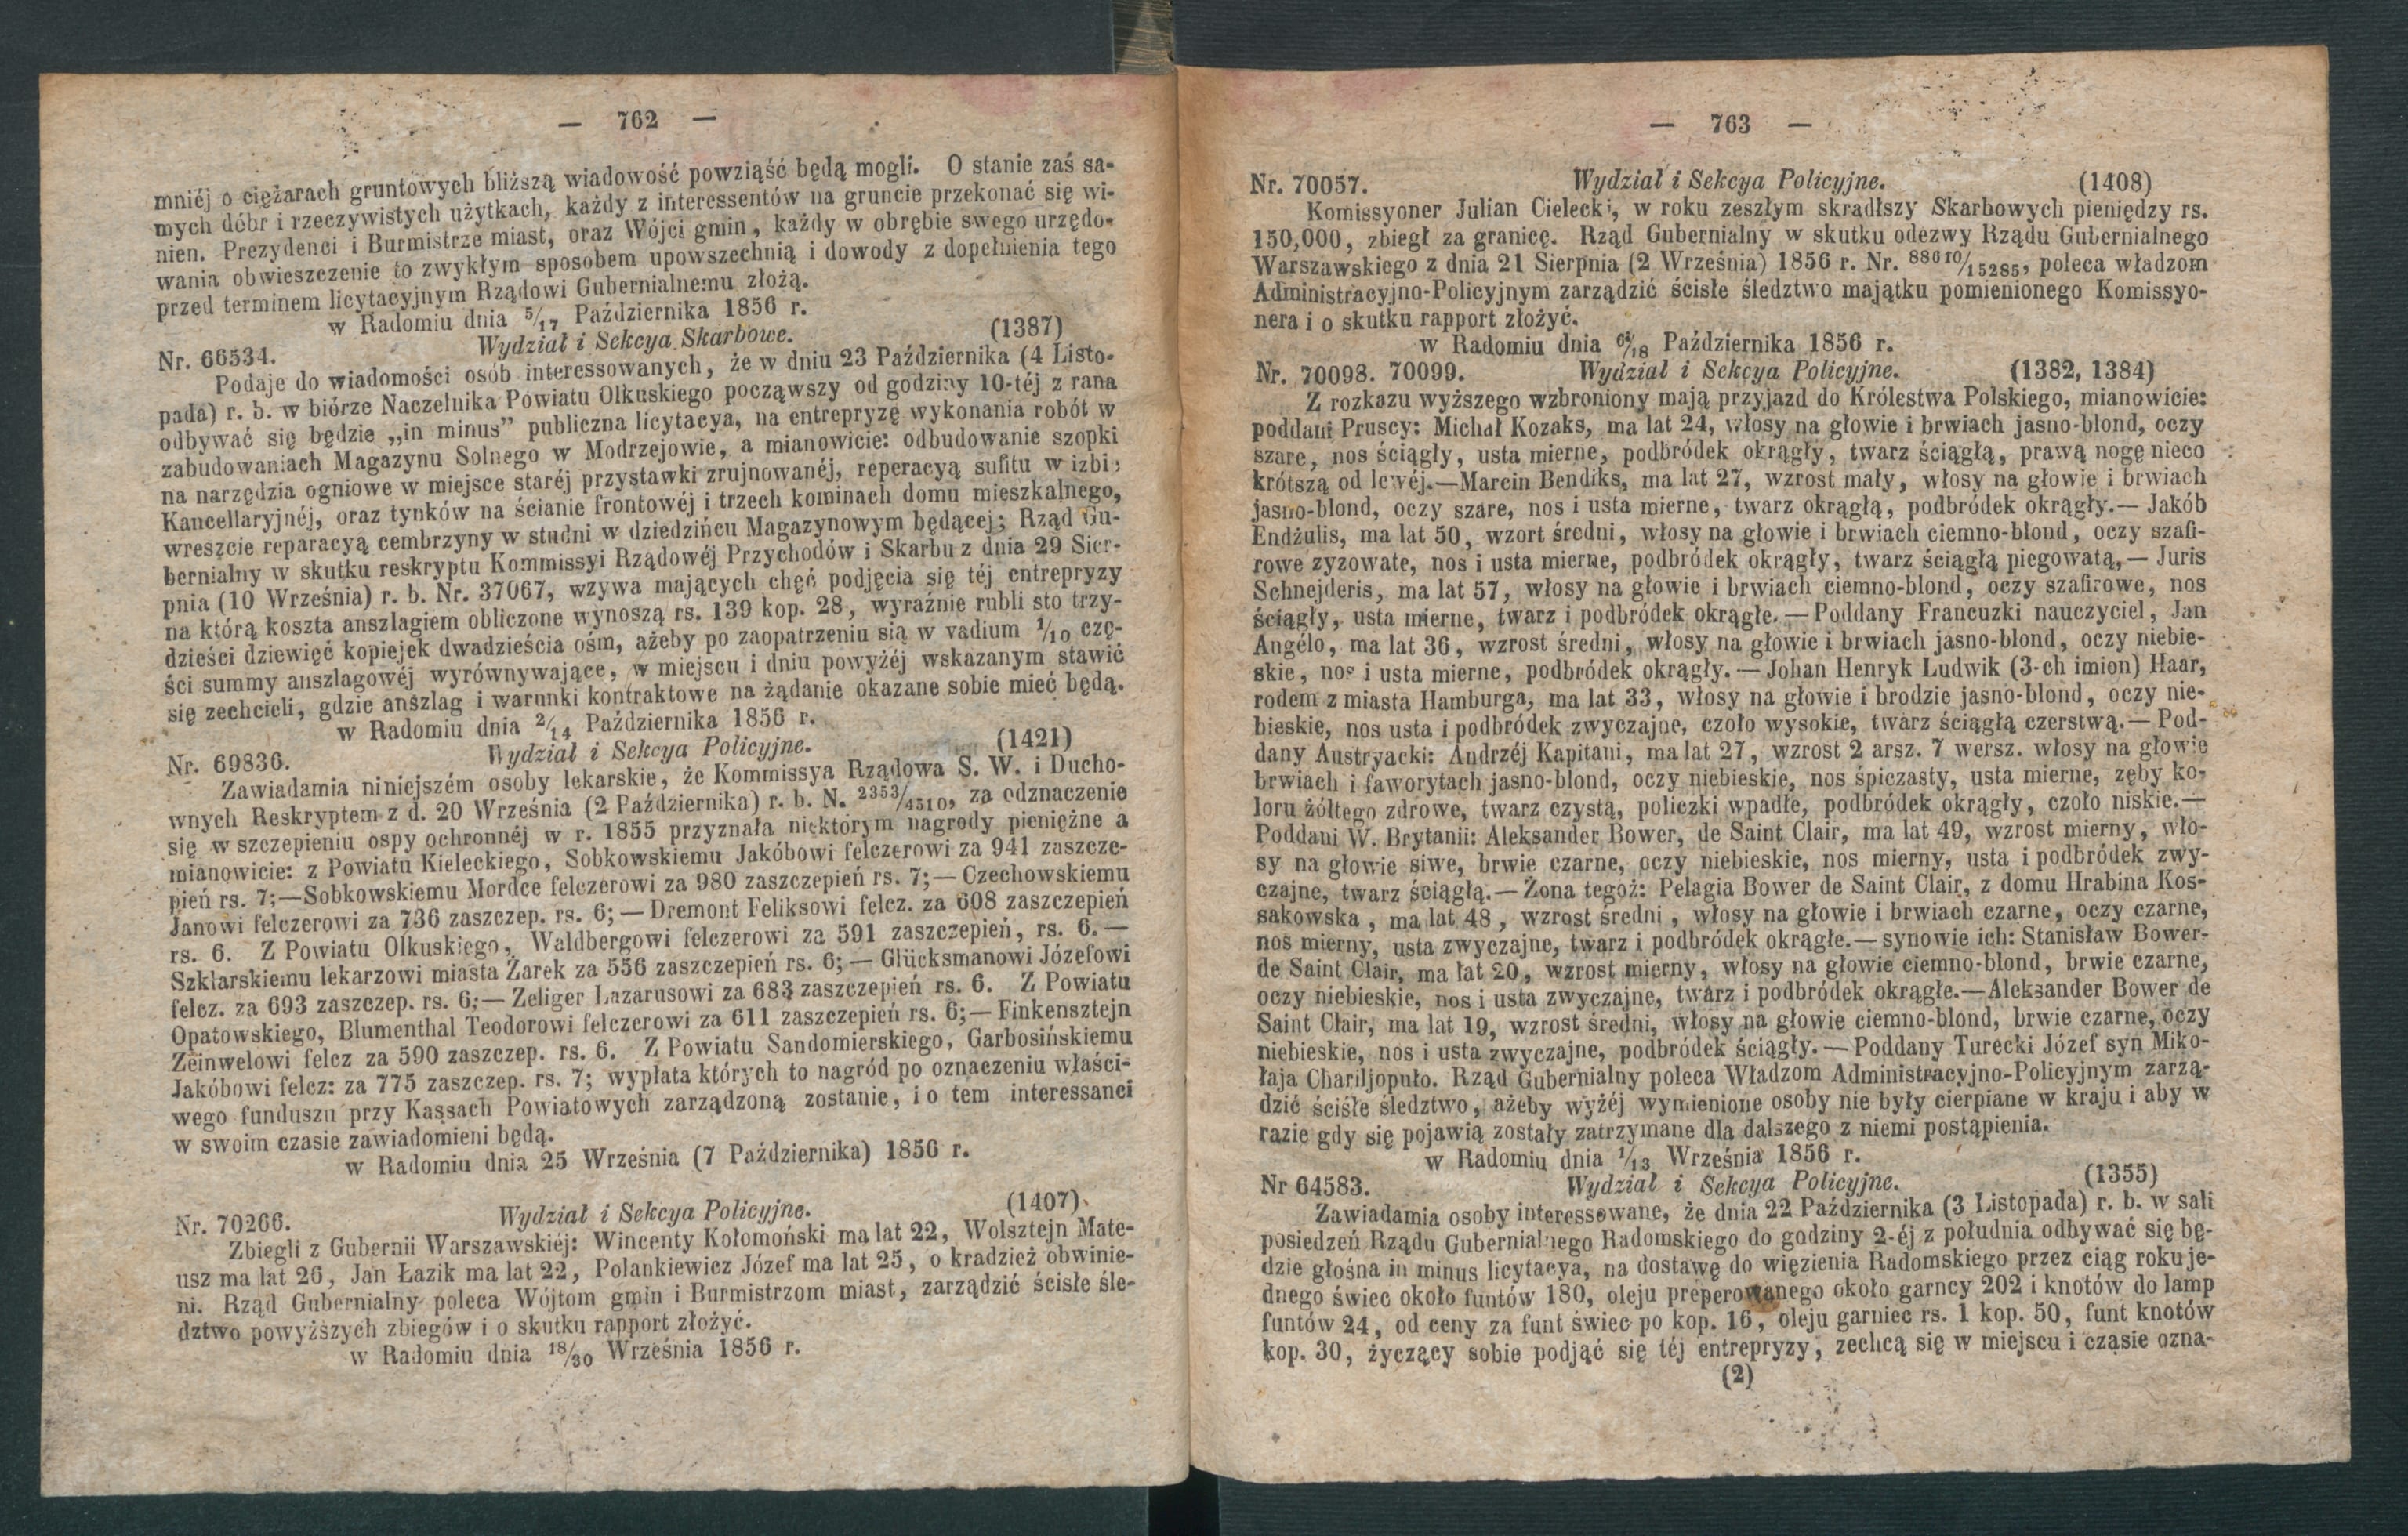 — 762 —
mniéj o ciężarach gruntowych bliższą wiadowość powziąść będą mogli. O stanie zaś sa-
mych dóbr i rzeczywistych użytkach, każdy z interessentów na gruncie przekonać się wi-
nien. Prezydenci i Burmistrze miast, oraz Wójci gmin, każdy w obrębie swego urzędo-
wania obwieszczenie to zwykłym sposobem upowszechnią i dowody z dopełnienia tego
przed terminem licytacyjnym Rządowi Gubernialnemu złożą.
w Radomiu dnia 5/17 Października 1856 r.
Nr. 66534. Wydział i Sekcya Skarbowe. (1387)
Podaje do wiadomości osób interessowanych, że w dniu 23 Października (4 Listo-
pada) r. b. w biórze Naczelnika Powiatu Olkuskiego począwszy od godziny 10-téj z rana
odbywać się będzie „in minus” publiczna licytacya, na entrepryzę wykonania robót w
zabudowaniach Magazynu Solnego w Modrzejowie, a mianowicie: odbudowanie szopki
na narzędzia ogniowe w miejsce staréj przystawki zrujnowanéj, reperacyą sufitu w izbi
Kancellaryjnéj, oraz tynków na ścianie frontowéj i trzech kominach domu mieszkalnego,
wreszcie reparacyą cembrzyny w studni w dziedzińcu Magazynowym będącej; Rząd Gu-
bernialny w skutku reskryptu Kommissyi Rządowéj Przychodów i Skarbu z dnia 29 Sier-
pnia (10 Września) r. b. Nr. 37067, wzywa mających chęć podjęcia się téj entrepryzy
na którą koszta anszlagiem obliczone wynoszą rs. 139 kop. 28, wyraźnie rubli sto trzy-
dzieści dziewięć kopiejek dwadzieścia ośm, ażeby po zaopatrzeniu sią w vadium 1/10 czę-
ści summy anszlagowéj wyrównywające, w miejscu i dniu powyżéj wskazanym stawić
się zechcieli, gdzie anszlag i warunki kontraktowe na żądanie okazane sobie mieć będą.
w Radomiu dnia 2/14 Października 1856 r.
Nr. 69836. Wydział i Sekcya Policyjne. (1421)
Zawiadamia niniejszém osoby lekarskie, że Kommissya Rządowa S. W. i Ducho-
wnych Reskryptem z d. 20 Września (2 Października) r. b. N. 2353/4510, za odznaczenie
się w szczepieniu ospy ochronnéj w r. 1855 przyznała niektórym nagrody pieniężne a
mianowicie: z Powiatu Kieleckiego, Sobkowskiemu Jakóbowi felczerowi za 941 zaszcze-
pień rs. 7;—Sobkowskiemu Mordce felczerowi za 980 zaszczepień rs. 7;— Czechowskiemu
Janowi felczerowi za 736 zaszczep. rs. 6; — Dremont Feliksowi felcz. za 608 zaszczepień
rs. 6. Z Powiatu Olkuskiego, Waldbergowi felczerowi za 591 zaszczepień, rs. 6. —
Szklarskiemu lekarzowi miasta Żarek za 556 zaszczepień rs. 6; — Glücksmanowi Józefowi
felcz. za 693 zaszczep. rs. 6;— Zeliger Lazarusowi za 683 zaszczepień rs. 6. Z Powiatu
Opatowskiego, Blumenthal Teodorowi felczerowi za 611 zaszczepień rs. 6;— Finkensztejn
Zeinwelowi felcz za 590 zaszczep. rs. 6. Z Powiatu Sandomierskiego, Garbosińskiemu
Jakóbowi felcz: za 775 zaszczep. rs. 7; wypłata których to nagród po oznaczeniu właści-
wego funduszu przy Kassach Powiatowych zarządzoną zostanie, i o tem interessanci
w swoim czasie zawiadomieni będą.
w Radomiu dnia 25 Września (7 Października) 1856 r.
Nr. 70266. Wydział i Sekcya Policyjne. (1407)
Zbiegli z Gubernii Warszawskiéj: Wincenty Kołomoński ma lat 22, Wolsztejn Mate-
usz ma lat 26, Jan Łazik ma lat 22, Polankiewicz Józef ma lat 25, o kradzież obwinie-
ni. Rząd Gubernialny poleca Wójtom gmin i Burmistrzom miast, zarządzić ścisłe śle-
dztwo powyższych zbiegów i o skutku rapport złożyć.
w Radomiu dnia 18/30 Września 1856 r.
— 763 —
Nr. 70057. Wydział i Sekcya Policyjne. (1408)
Komissyoner Julian Cielecki, w roku zeszłym skradłszy Skarbowych pieniędzy rs.
150,000, zbiegł za granicę. Rząd Gubernialny w skutku odezwy Rządu Gubernialnego
Warszawskiego z dnia 21 Sierpnia (2 Września) 1856 r. Nr. 88610/15285, poleca władzom
Administracyjno-Policyjnym zarządzić ścisłe śledztwo majątku pomienionego Komissyo-
nera i o skutku rapport złożyć.
w Radomiu dnia 6/18 Października 1856 r.
Nr. 70098. 70099. Wydział i Sekcya Policyjne. (1382, 1384)
Z rozkazu wyższego wzbroniony mają przyjazd do Królestwa Polskiego, mianowicie:
poddani Pruscy: Michał Kozaks, ma lat 24, włosy na głowie i brwiach jasno-blond, oczy
szare, nos ściągły, usta mierne, podbródek okrągły, twarz ściągłą, prawą nogę nieco
krótszą od lewéj.—Marcin Bendiks, ma lat 27, wzrost mały, włosy na głowie i brwiach
jasno-blond, oczy szare, nos i usta mierne, twarz okrągłą, podbródek okrągły.— Jakób
Endżulis, ma lat 50, wzort średni, włosy na głowie i brwiach ciemno-blond, oczy szafi-
rowe zyzowate, nos i usta mierne, podbródek okrągły, twarz ściągłą piegowatą,— Juris
Schnejderis, ma lat 57, włosy na głowie i brwiach ciemno-blond, oczy szafirowe, nos
ściągły, usta mierne, twarz i podbródek okrągłe. — Poddany Francuzki nauczyciel, Jan
Angélo, ma lat 36, wzrost średni, włosy na głowie i brwiach jasno-blond, oczy niebie-
skie, nos i usta mierne, podbródek okrągły. — Johan Henryk Ludwik (3-ch imion) Haar,
rodem z miasta Hamburga, ma lat 33, włosy na głowie i brodzie jasno-blond, oczy nie-
bieskie, nos usta i podbródek zwyczajne, czoło wysokie, twarz ściągłą czerstwą.— Pod-
dany Austryacki: Andrzéj Kapitani, ma lat 27, wzrost 2 arsz. 7 wersz. włosy na głowie
brwiach i faworytach jasno-blond, oczy niebieskie, nos śpiczasty, usta mierne, zęby ko-
loru żółtego zdrowe, twarz czystą, policzki wpadłe, podbródek okrągły, czoło niskie.—
Poddani W. Brytanii: Aleksander Bower, de Saint Clair, ma lat 49, wzrost mierny, wło-
sy na głowie siwe, brwie czarne, oczy niebieskie, nos mierny, usta i podbródek zwy-
czajne, twarz ściągłą.— Żona tegoż: Pelagia Bower de Saint Clair, z domu Hrabina Kos-
sakowska, ma lat 48, wzrost średni, włosy na głowie i brwiach czarne, oczy czarne,
nos mierny, usta zwyczajne, twarz i podbródek okrągłe.— synowie ich: Stanisław Bower-
de Saint Clair, ma lat 20, wzrost mierny, włosy na głowie ciemno-blond, brwie czarne,
oczy niebieskie, nos i usta zwyczajne, twarz i podbródek okrągłe.—Aleksander Bower de
Saint Clair, ma lat 19, wzrost średni, włosy na głowie ciemno-blond, brwie czarne, oczy
niebieskie, nos i usta zwyczajne, podbródek ściągły. — Poddany Turecki Józef syn Miko-
łaja Chariljopuło. Rząd Gubernialny poleca Władzom Administracyjno-Policyjnym zarzą-
dzić ściśłe śledztwo, ażeby wyżéj wymienione osoby nie były cierpiane w kraju i aby w
razie gdy się pojawią zostały zatrzymane dla dalszego z niemi postąpienia.
w Radomiu dnia 1/13 Września 1856 r.
Nr 64583. Wydział i Sekcya Policyjne. (1355)
Zawiadamia osoby interessowane, że dnia 22 Października (3 Listopada) r. b. w sali
posiedzeń Rządu Gubernialnego Radomskiego do godziny 2-éj z południa odbywać się bę-
dzie głośna in minus licytacya, na dostawę do więzienia Radomskiego przez ciąg roku je-
dnego świec około funtów 180, oleju preperowanego około garncy 202 i knotów do lamp
funtów 24, od ceny za funt świec po kop. 16, oleju garniec rs. 1 kop. 50, funt knotów
kop. 30, życzący sobie podjąć się téj entrepryzy, zechcą się w miejscu i czasie ozna-
(2)